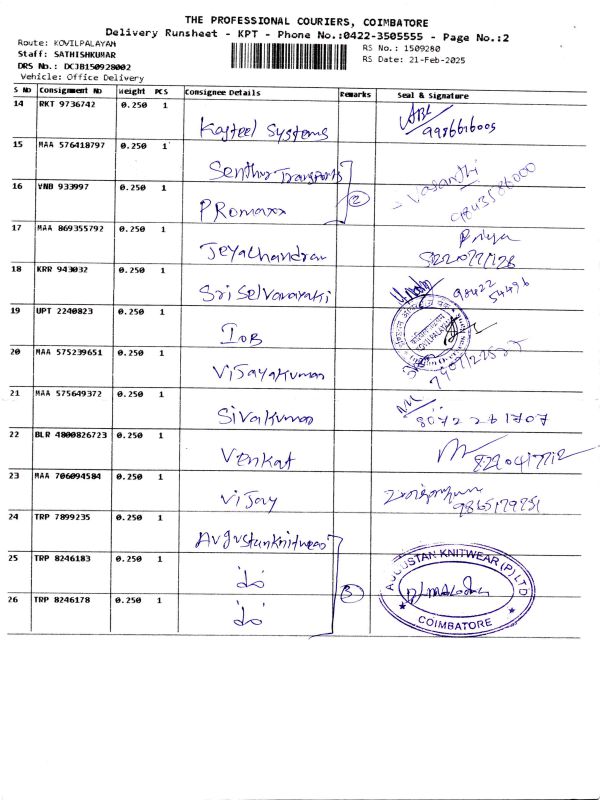 THE PROFESSIONAL COURIERS, COIMBATORE
Delivery Runsheet - KPT - Phone No.:0422-3505555 - Page No.:2
Route: KOVILPALAYAN
Staff: SATHISHKUMAR
DRS No.: DCJB150928002
Vehicle: Office Delivery
RS No.: 1509280
RS Date: 21-Feb-2025
S No Consignment No Weight PCS Consignee Details Remarks Seal & Signature
14 RKT 9736742 0.250 1 Kasteel Systems
9986616005
15 MAA 576418797 0.250 1 Senthur Transports
16 VNB 933997 0.250 1 PRomaxx 2 Vasanthi
9843586000
17 MAA 869355792 0.250 1 Jeyachandran Priya
18 KRR 943032 0.250 1 Sri Selvanayaki 98422 54496
19 UPT 2240823 0.250 1 IOB KOVILPALAYAM
20 MAA 575239651 0.250 1 Vijayakumar
21 MAA 575649372 0.250 1 Sivakumar
22 BLR 4800826723 0.250 1 Venkat 8220417712
23 MAA 706094584 0.250 1 Vijay 9865179251
24 TRP 7899235 0.250 1 Augustanknitwear
25 TRP 8246183 0.250 1 do 3 AUGUSTAN KNITWEAR (P) LTD
26 TRP 8246178 0.250 1 do COIMBATORE